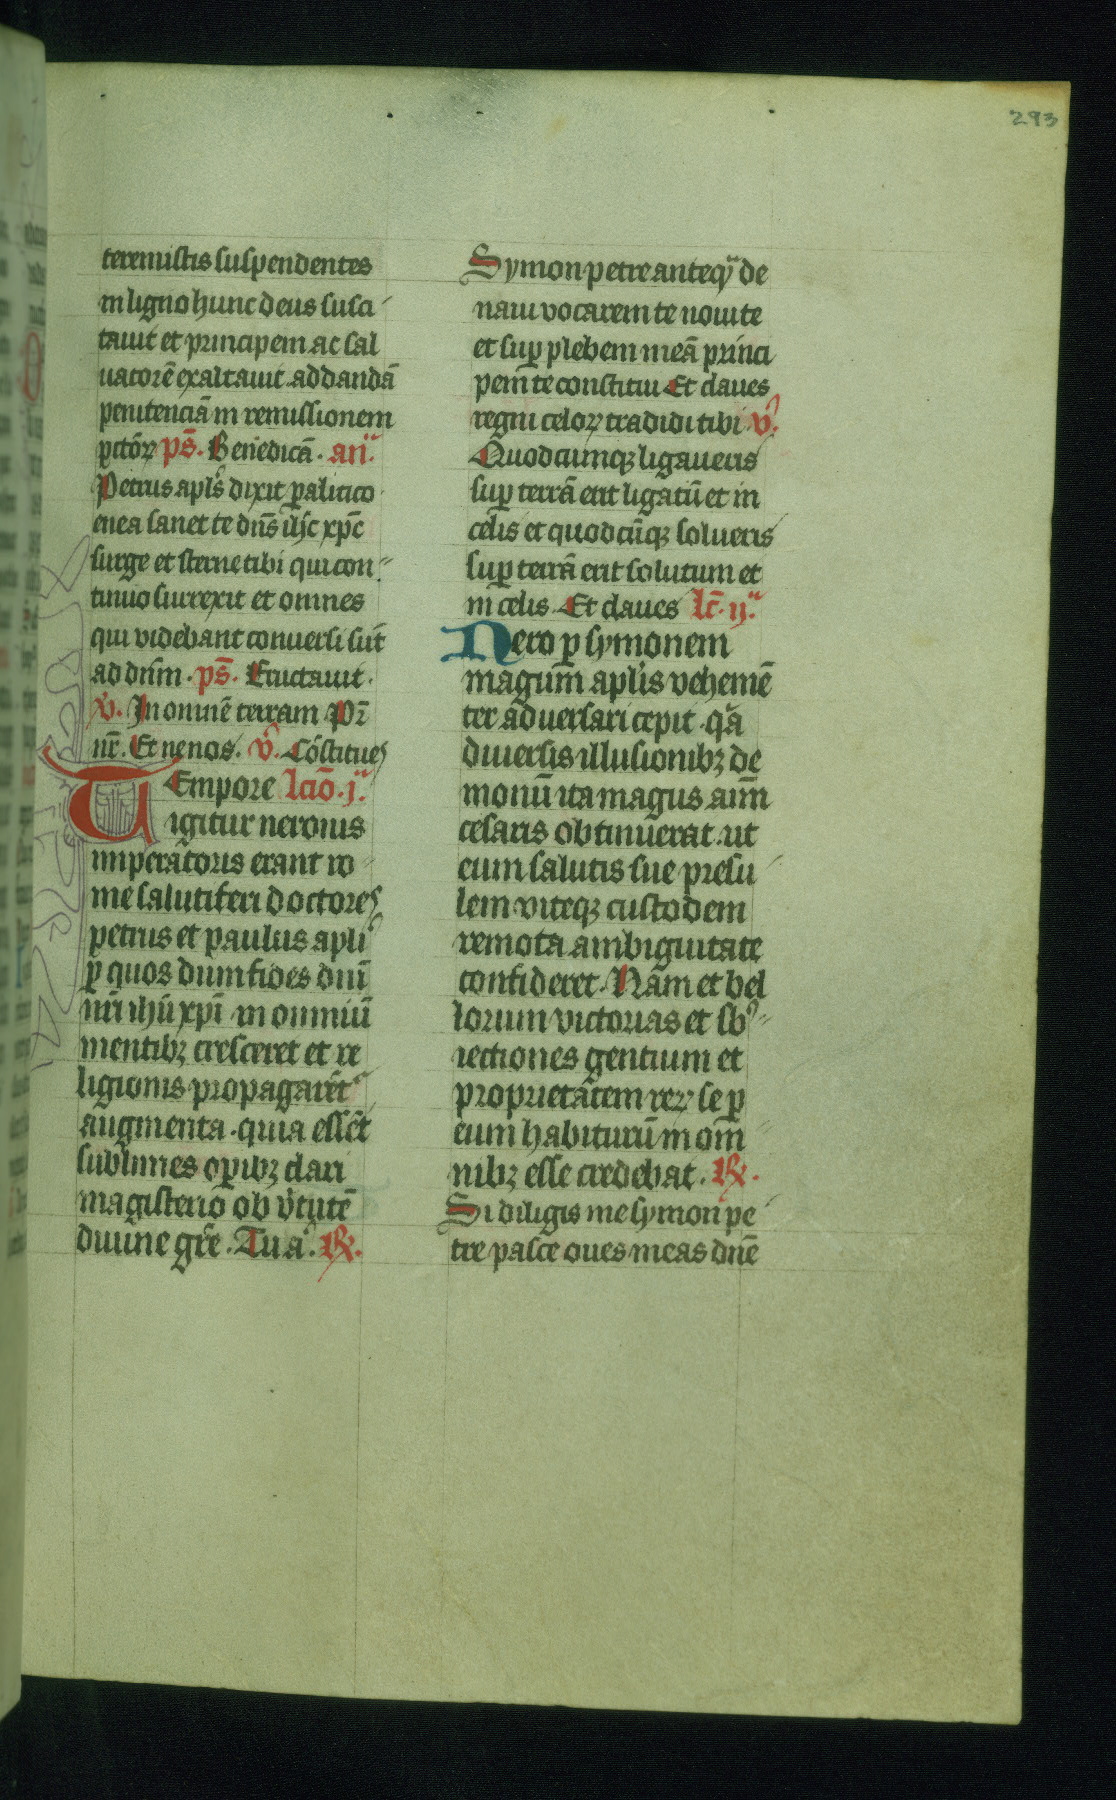 293
teremistis suspendentes
in ligno hunc deus susci
tauit et principem ac sal
uatorē exaltauit ad dandā
penitenciā in remissionem
pctōrꝝ ps̄. Benedicā. an̄.
Petrus apl̓s dixit ꝑalitico
enea sanet te dn̄s ih̄c xp̄c
surge et sterne tibi qui con
tinuo surrexit et omnes
qui videbant conuersi sūt
ad dn̄m. ps̄. Eructauit.
v̓. In omnē terram Pr̄
nr̄. Et ne nos. v̓. Cōstitues
Tempore lcīo. j.
igitur neronis
imperatoris erant ro
me salutiferi doctores
petrus et paulus apli
ꝑ quos dum fides dni
nr̄i ih̄u xp̄i in omniū
mentibꝫ cresceret et re
ligionis propagarēt᷑
augmenta. quia essēt
sublimes oꝑibꝫ clari
magisterio ob v̓tutē
diuine gr̄e. Tu a. ℟.
Symon petre anteqͣ̈ de
naui vocarem te noui te
et suꝑ plebem meā princi
pem te constitui Et claues
regni celorꝝ tradidi tibi v̓.
Quodcumqꝫ ligaueris
suꝑ terrā erit ligatū et in
celis et quodcūqꝫ solueris
suꝑ terrā erit solutum et
in celis Et claues lc̄. ij.
Nero ꝑ symonem
magum aplis vehemē
ter aduersari cepit. qͣa
diuersis illusionibꝫ de
monū ita magus aīm
cesaris obtinuerat. ut
eum salutis sue presu
lem viteqꝫ custodem
remota ambiguitate
confideret. Nam et bel
lorum victorias et sbꝰ
iectiones gentium et
proprietatem rerꝝ se ꝑ
eum habiturū in om̄
nibꝫ esse credebat. ℟.
Si diligis me symon pe
tre pasce oues meas dn̄e